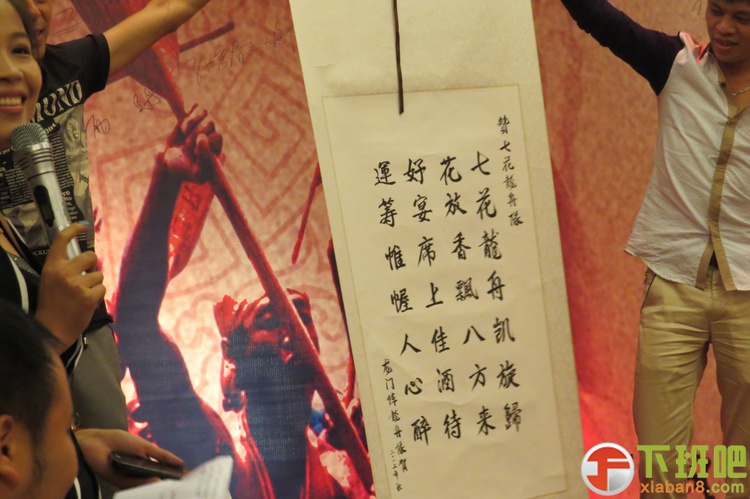 贊七花龍舟隊
七花龍舟凱旋歸
花放香飄八方来
好宴席上佳酒待
運筹惟幄人心醉
龙门
下班吧
xiaban8.com